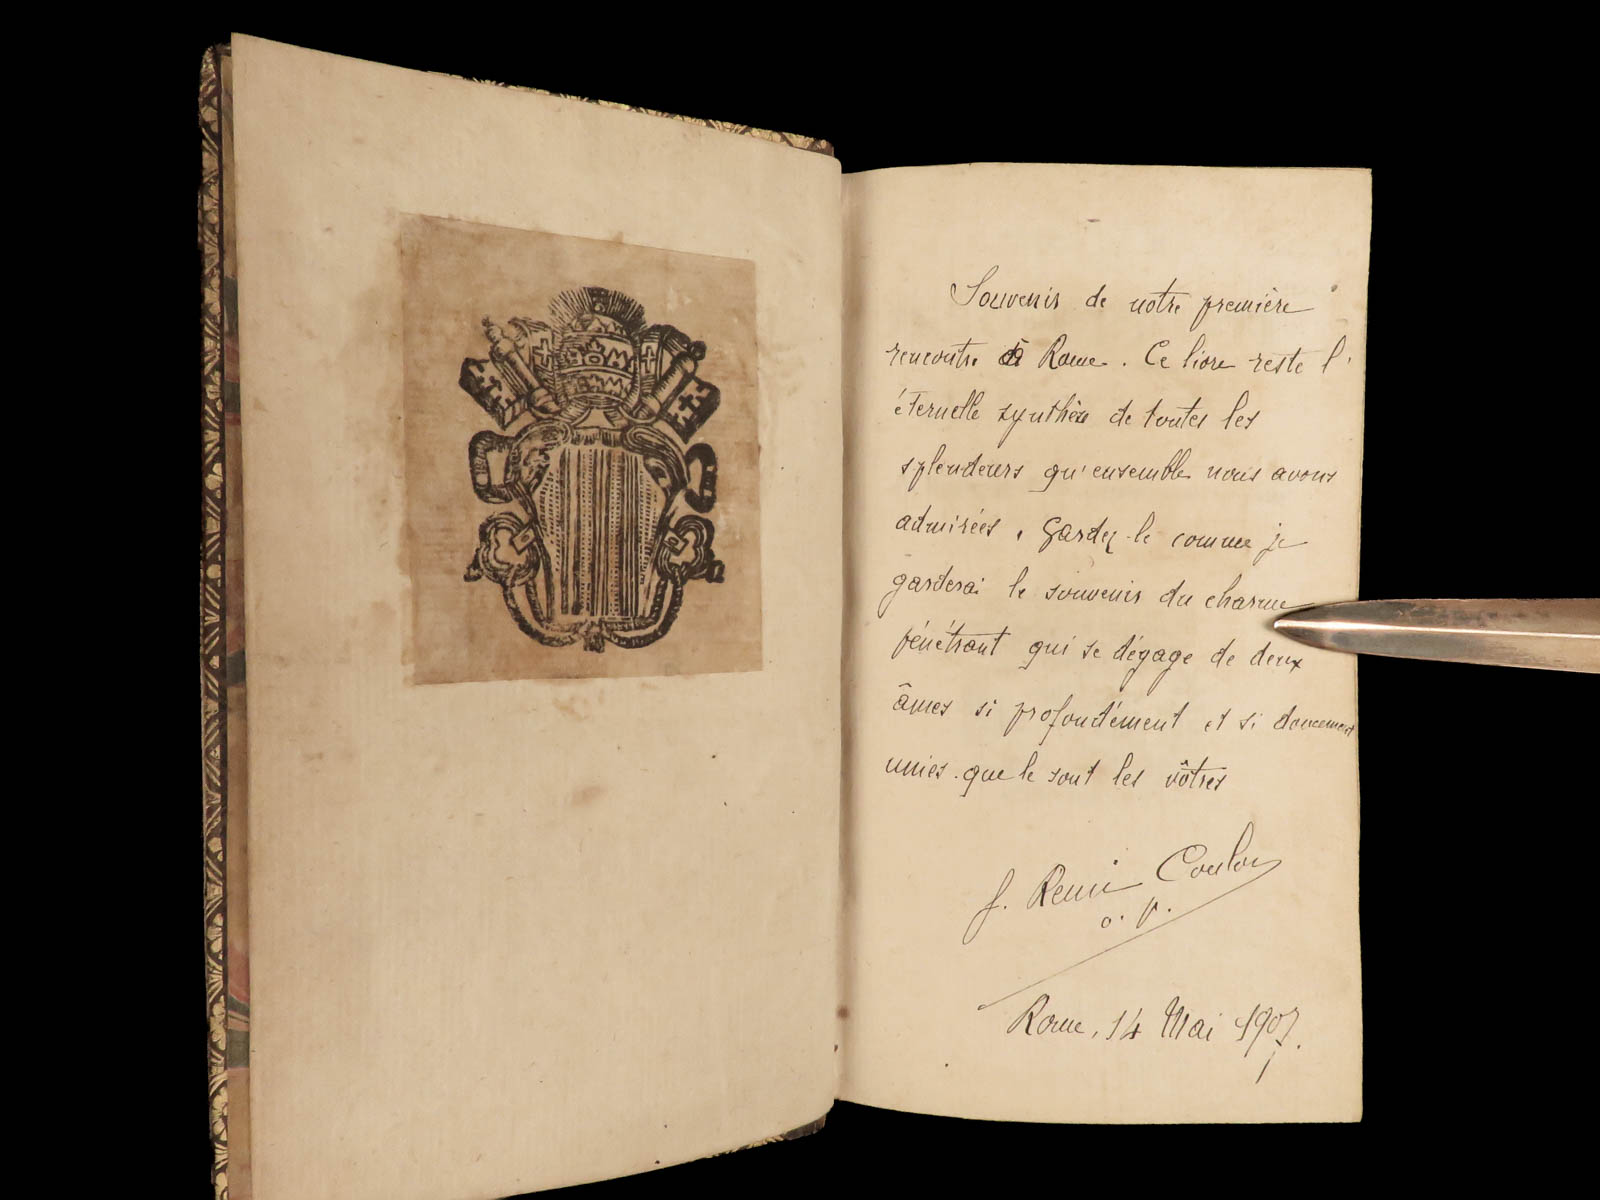 Souvenir de notre première
rencontre à Rome. Ce livre reste l'
éternelle synthèse de toutes les
splendeurs qu'ensemble nous avons
admirées. Gardez-le comme je
garderai le souvenir du charme
pénétrant qui se dégage de deux
âmes si profondément et si doucement
unies que le sont les vôtres
f. Remi Coulon
o. p.
Rome, 14 Mai 1907.